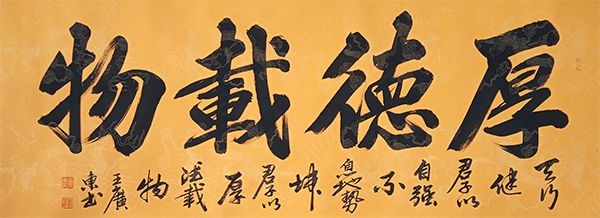 厚德載物
天行健君子以自强不息地勢坤君子以厚德載物
王廣東书